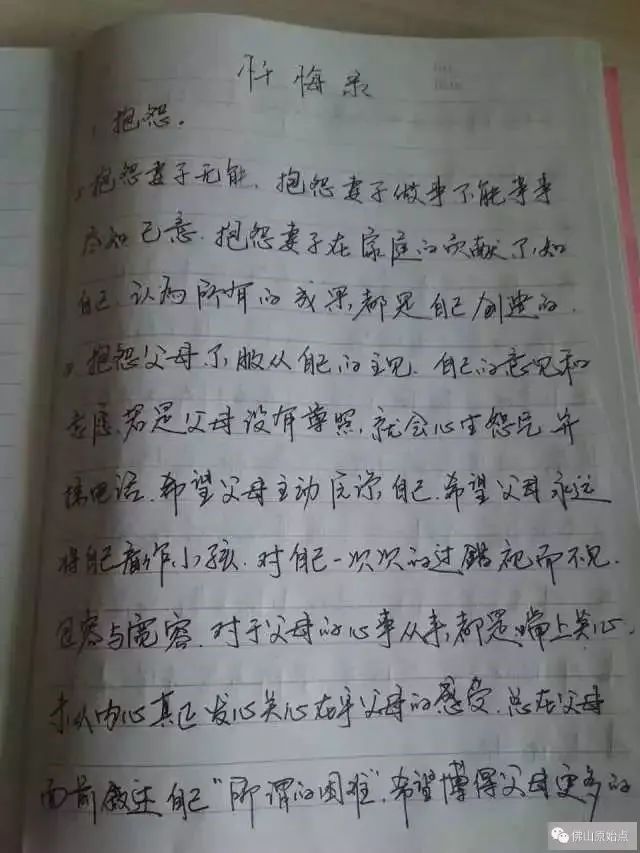 忏悔录
1 抱怨。
1、抱怨妻子无能、抱怨妻子做事不能事事
尽如己意.抱怨妻子在家庭的贡献不如
自己.认为所有的成果都是自己创造的.
2.抱怨父母不服从自己的主见.自己的意见和
意愿,若是父母没有尊照,就会心生怨气并
摔电话.希望父母主动原谅自己.希望父母永远
将自己看作小孩.对自己一次次的过错视而不见.
包容与宽容.对于父母的心事从来都是嘴上关心.
未从内心真正发心关心在乎父母的感受.总在父母
面前叙述自己"所谓的困难",希望博得父母更多的
佛山原始点